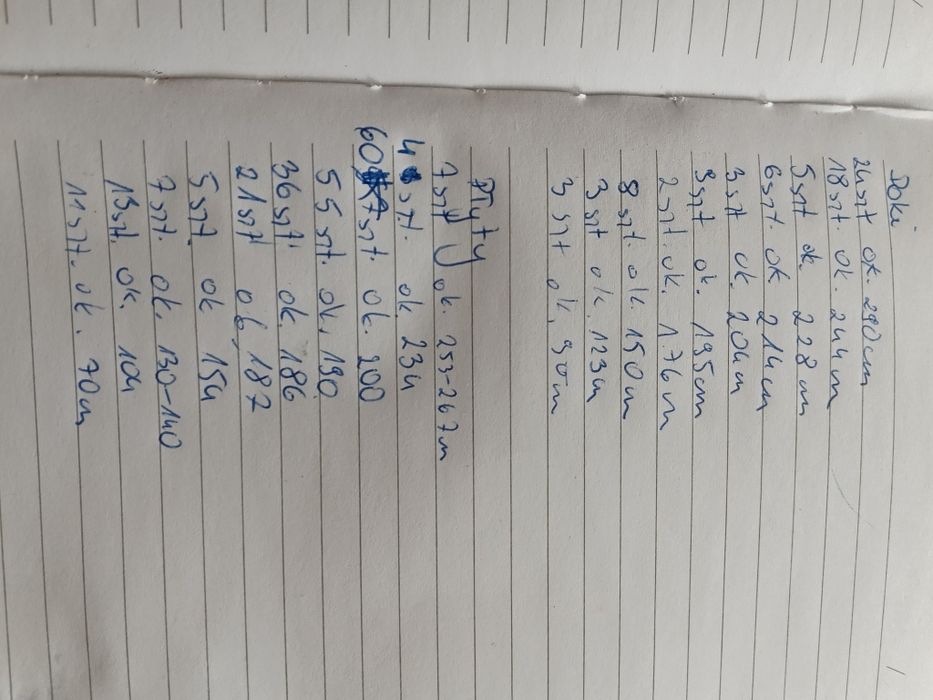 Doki
24szt ok. 290cm
18szt. ok. 244cm
5szt ok. 228cm
6szt. ok. 214cm
3szt ok. 204cm
9szt ok. 195cm
2szt. ok. 176cm
8szt. ok. 150cm
3szt ok. 123cm
3szt ok. 90cm
Płyty
7szt ok. 253-267cm
4 szt. ok 234
60 szt. ok. 200
55szt. ok. 190
36szt. ok. 186
21szt ok. 187
5szt. ok 154
7szt. ok. 130-140
13szt. ok. 104
11szt. ok. 70cm